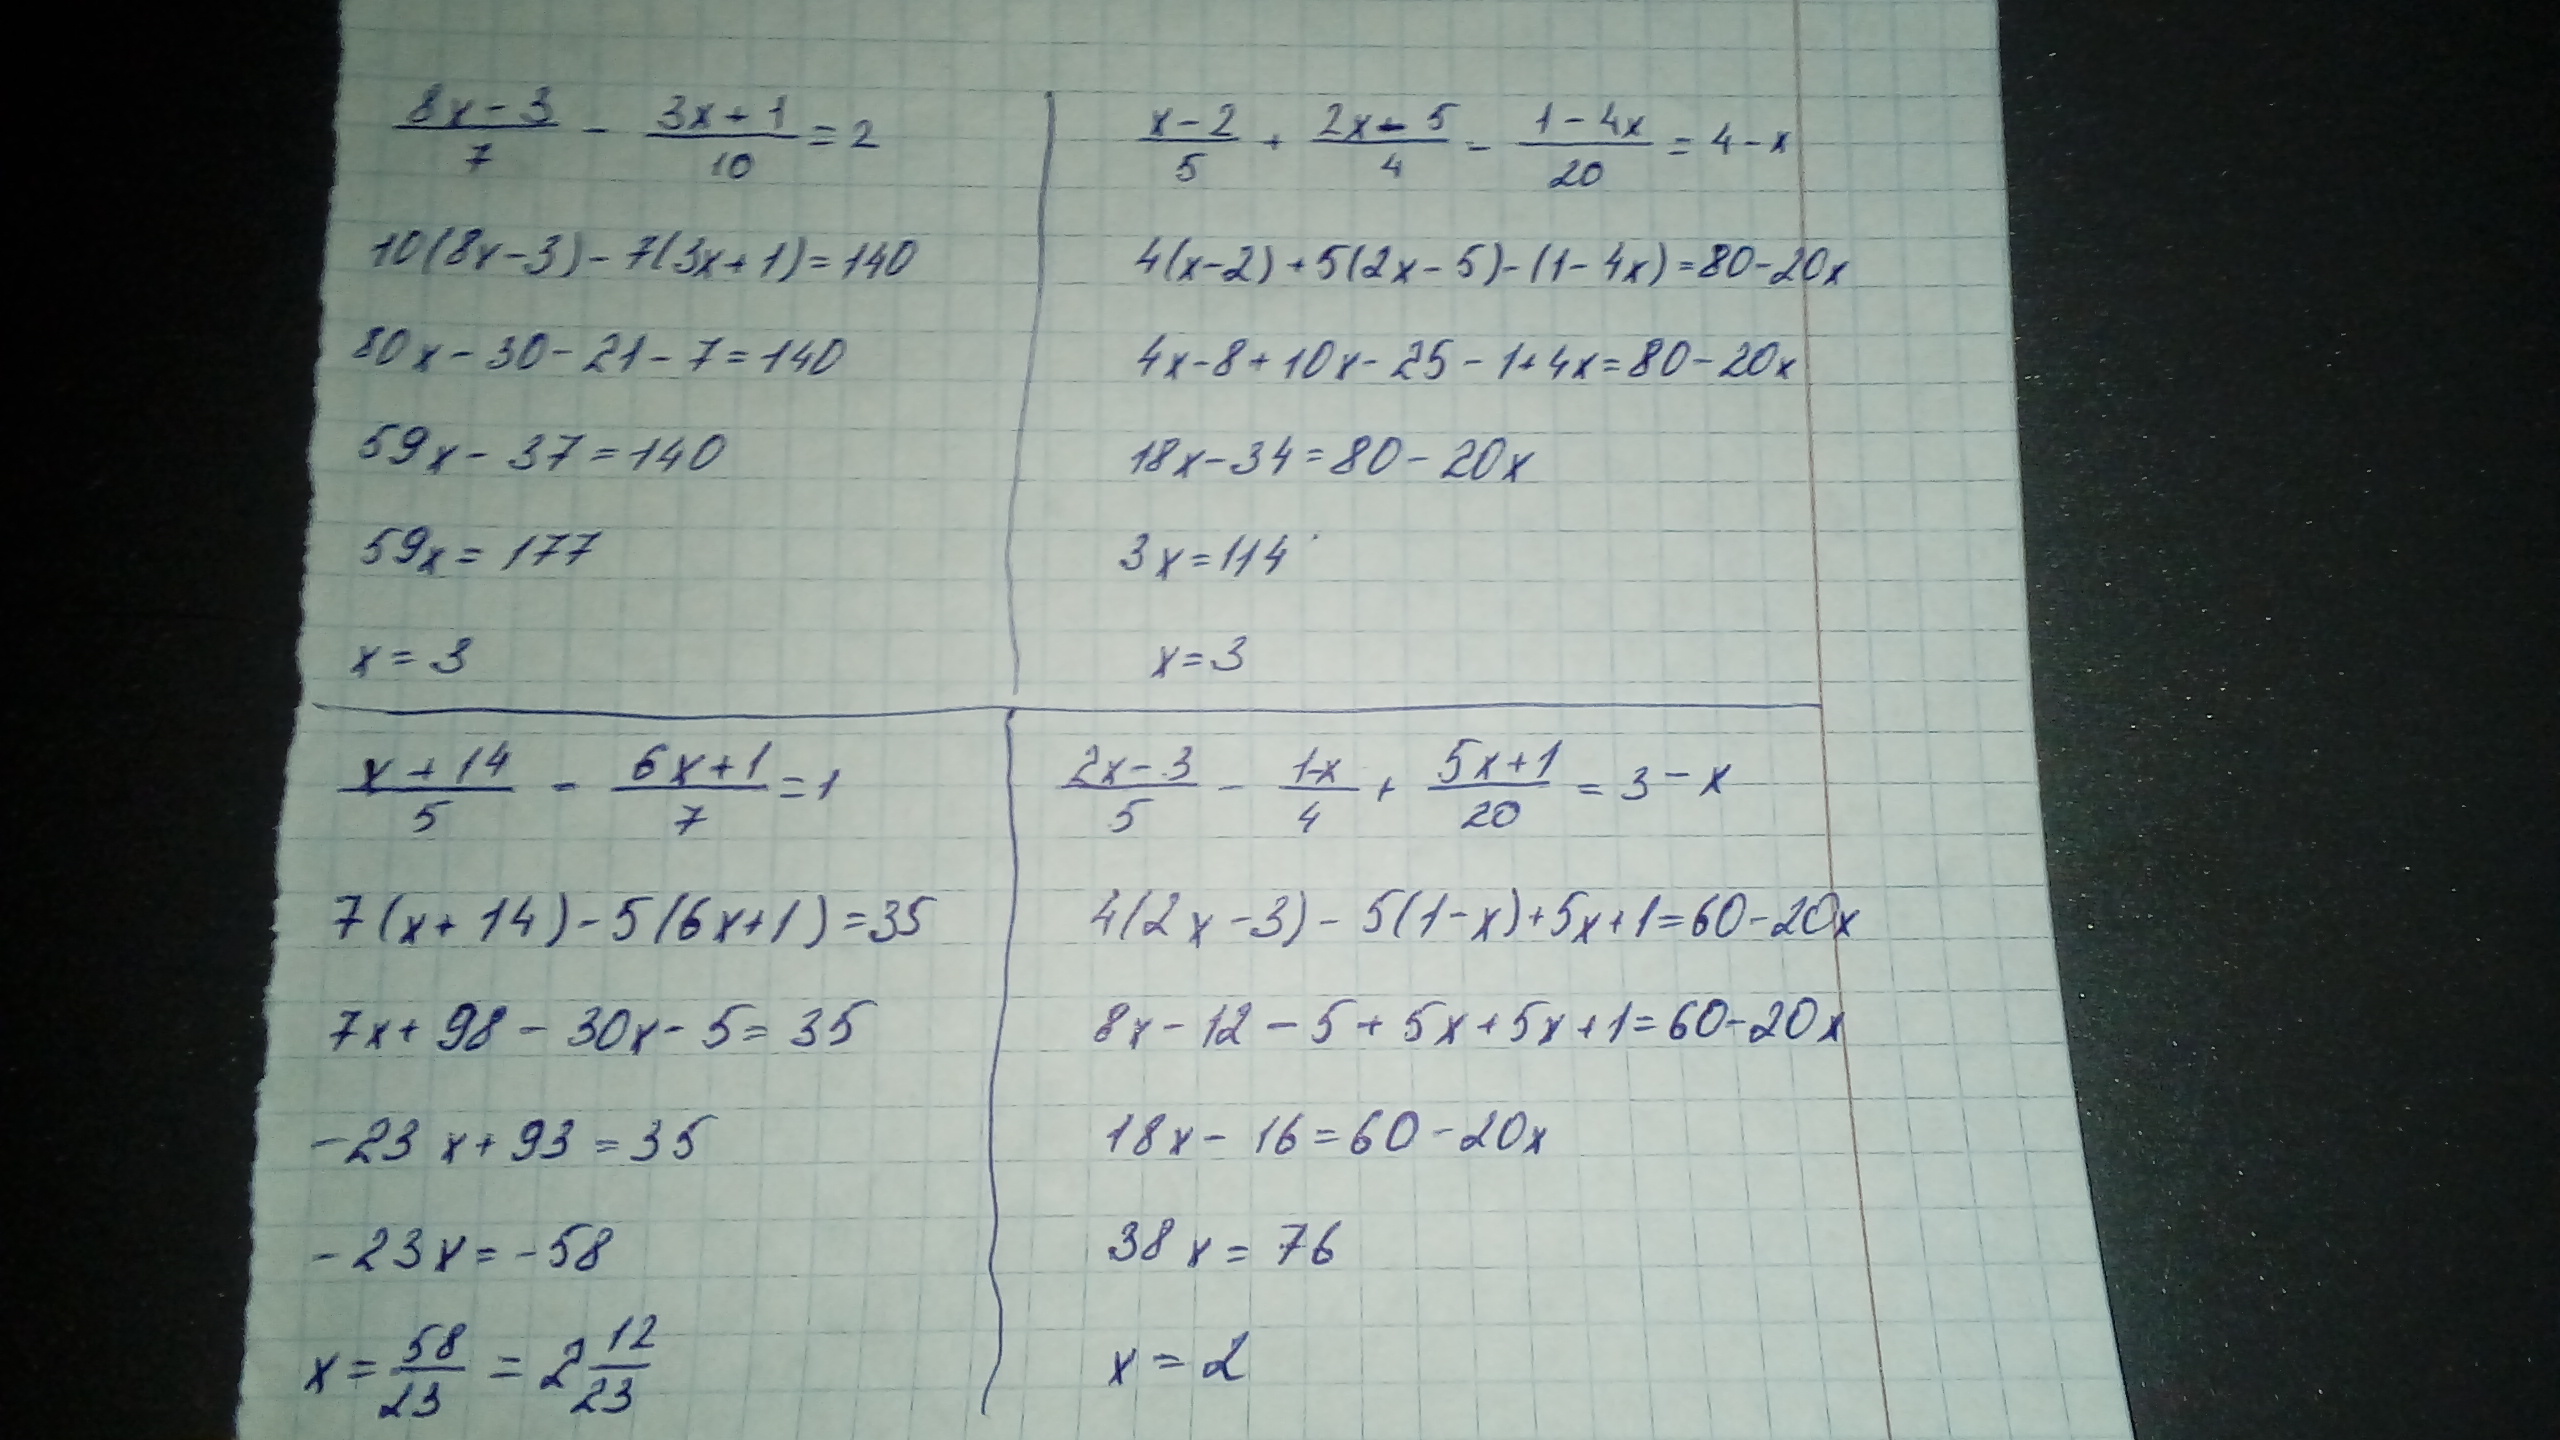 (8x-3)/7 - (3x+1)/10 = 2
10(8x-3)-7(3x+1)=140
80x-30-21-7=140
59x-37=140
59x=177
x=3
(x-2)/5 + (2x-5)/4 - (1-4x)/20 = 4-x
4(x-2)+5(2x-5)-(1-4x)=80-20x
4x-8+10x-25-1+4x=80-20x
18x-34=80-20x
3x=114
x=3
(x+14)/5 - (6x+1)/7 = 1
7(x+14)-5(6x+1)=35
7x+98-30x-5=35
-23x+93=35
-23x=-58
x=58/23=2 12/23
(2x-3)/5 - (1-x)/4 + (5x+1)/20 = 3-x
4(2x-3)-5(1-x)+5x+1=60-20x
8x-12-5+5x+5x+1=60-20x
18x-16=60-20x
38x=76
x=2